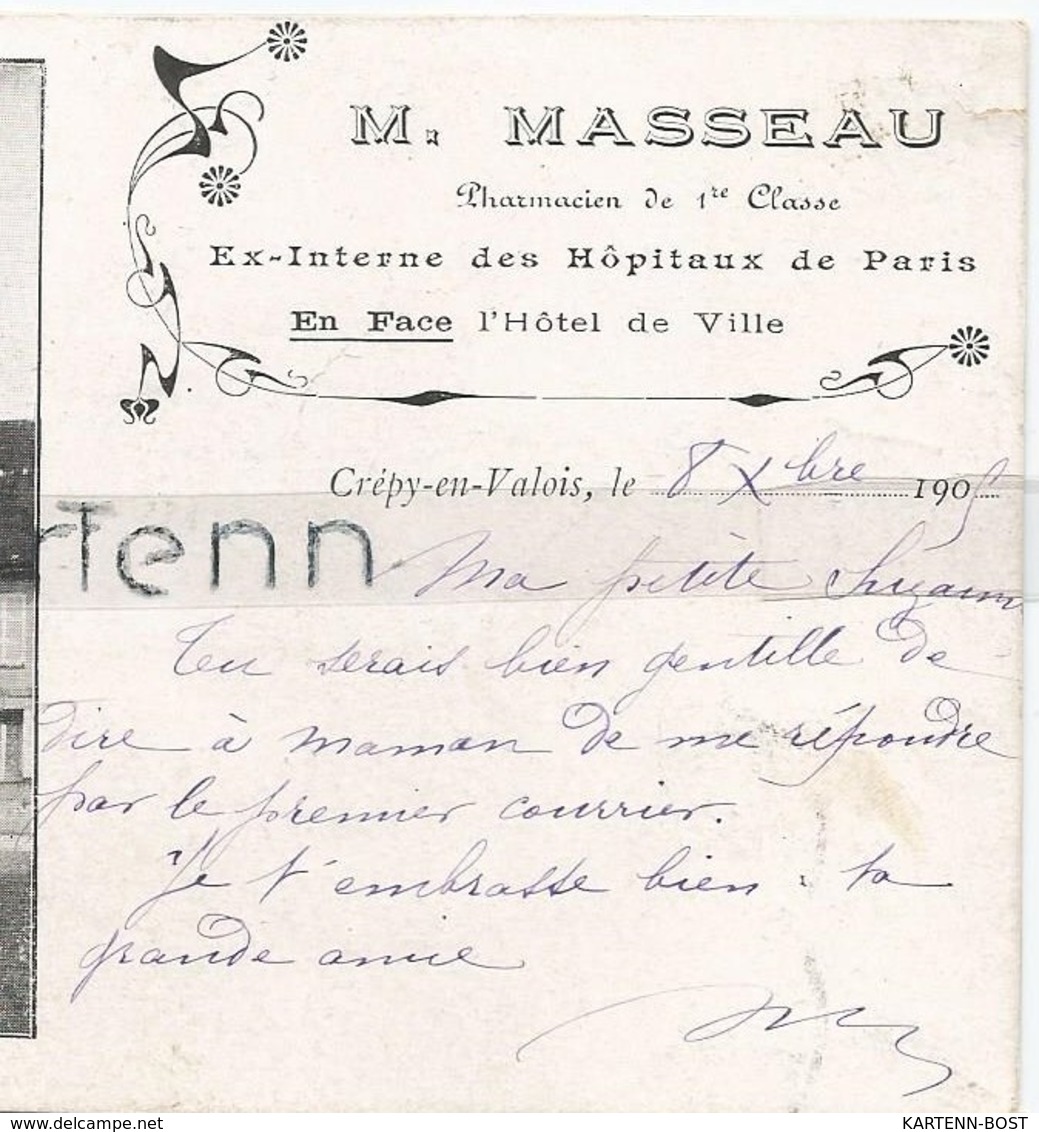 M. MASSEAU
Pharmacien de 1re Classe
Ex-Interne des Hôpitaux de Paris
En Face l'Hôtel de Ville
Crépy-en-Valois, le 8 Xbre 1905
rtenn
Ma petite Suzanne
Tu serais bien gentille de
dire à maman de me répondre
par le premier courrier.
Je t'embrasse bien. ta
grande amie
www.delcampe.net
KARTENN-BOST